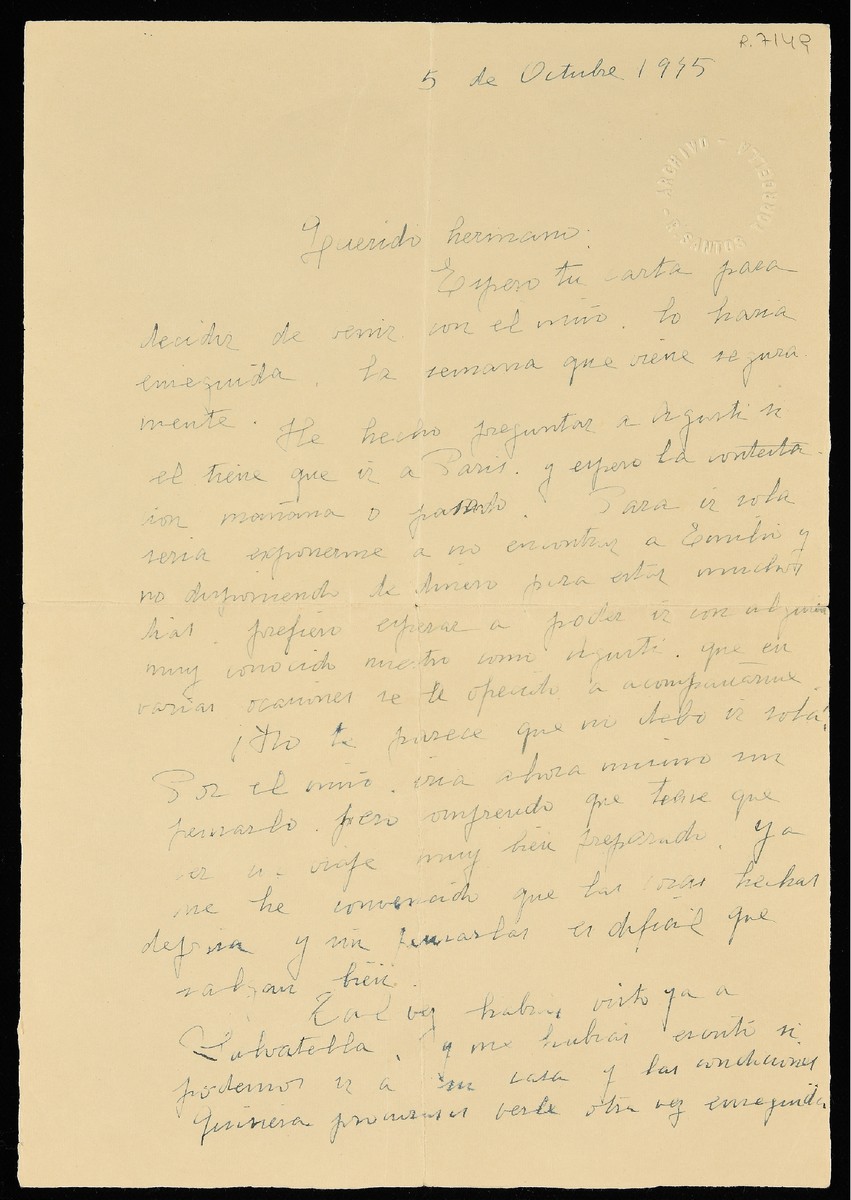 R.7149
5 de Octubre 1945
ARCHIVO - S. SANTOS TORROELLA -
Querido hermano:
Espero tu carta para
decidir de venir con el niño. Lo haria
enseguida. La semana que viene segura
mente. He hecho preguntar a Agusti si
el tiene que ir a Paris. y espero la contesta-
cion mañana o pasado. Para ir sola
seria exponerme a no encontrar a Emilio y
no disponiendo de dinero para estar muchos
dias, prefiero esperar a poder ir con alguien
muy conocido nuestro como Agusti. que en
varias ocasiones se le ofrecido a acompañarme.
¡No te parece que no debo ir sola!
Por el niño. iria ahora mismo sin
pensarlo. pero comprendo que tiene que
ser un viaje muy bien preparado. Ya
me he convencido que las cosas hechas
deprisa y sin pensarlas es dificil que
salgan bien.
Tal vez habras visto ya a
Salvatella. y me habras escrito si
podemos ir a su casa y las condiciones
Quisiera procurases verle otra vez enseguida